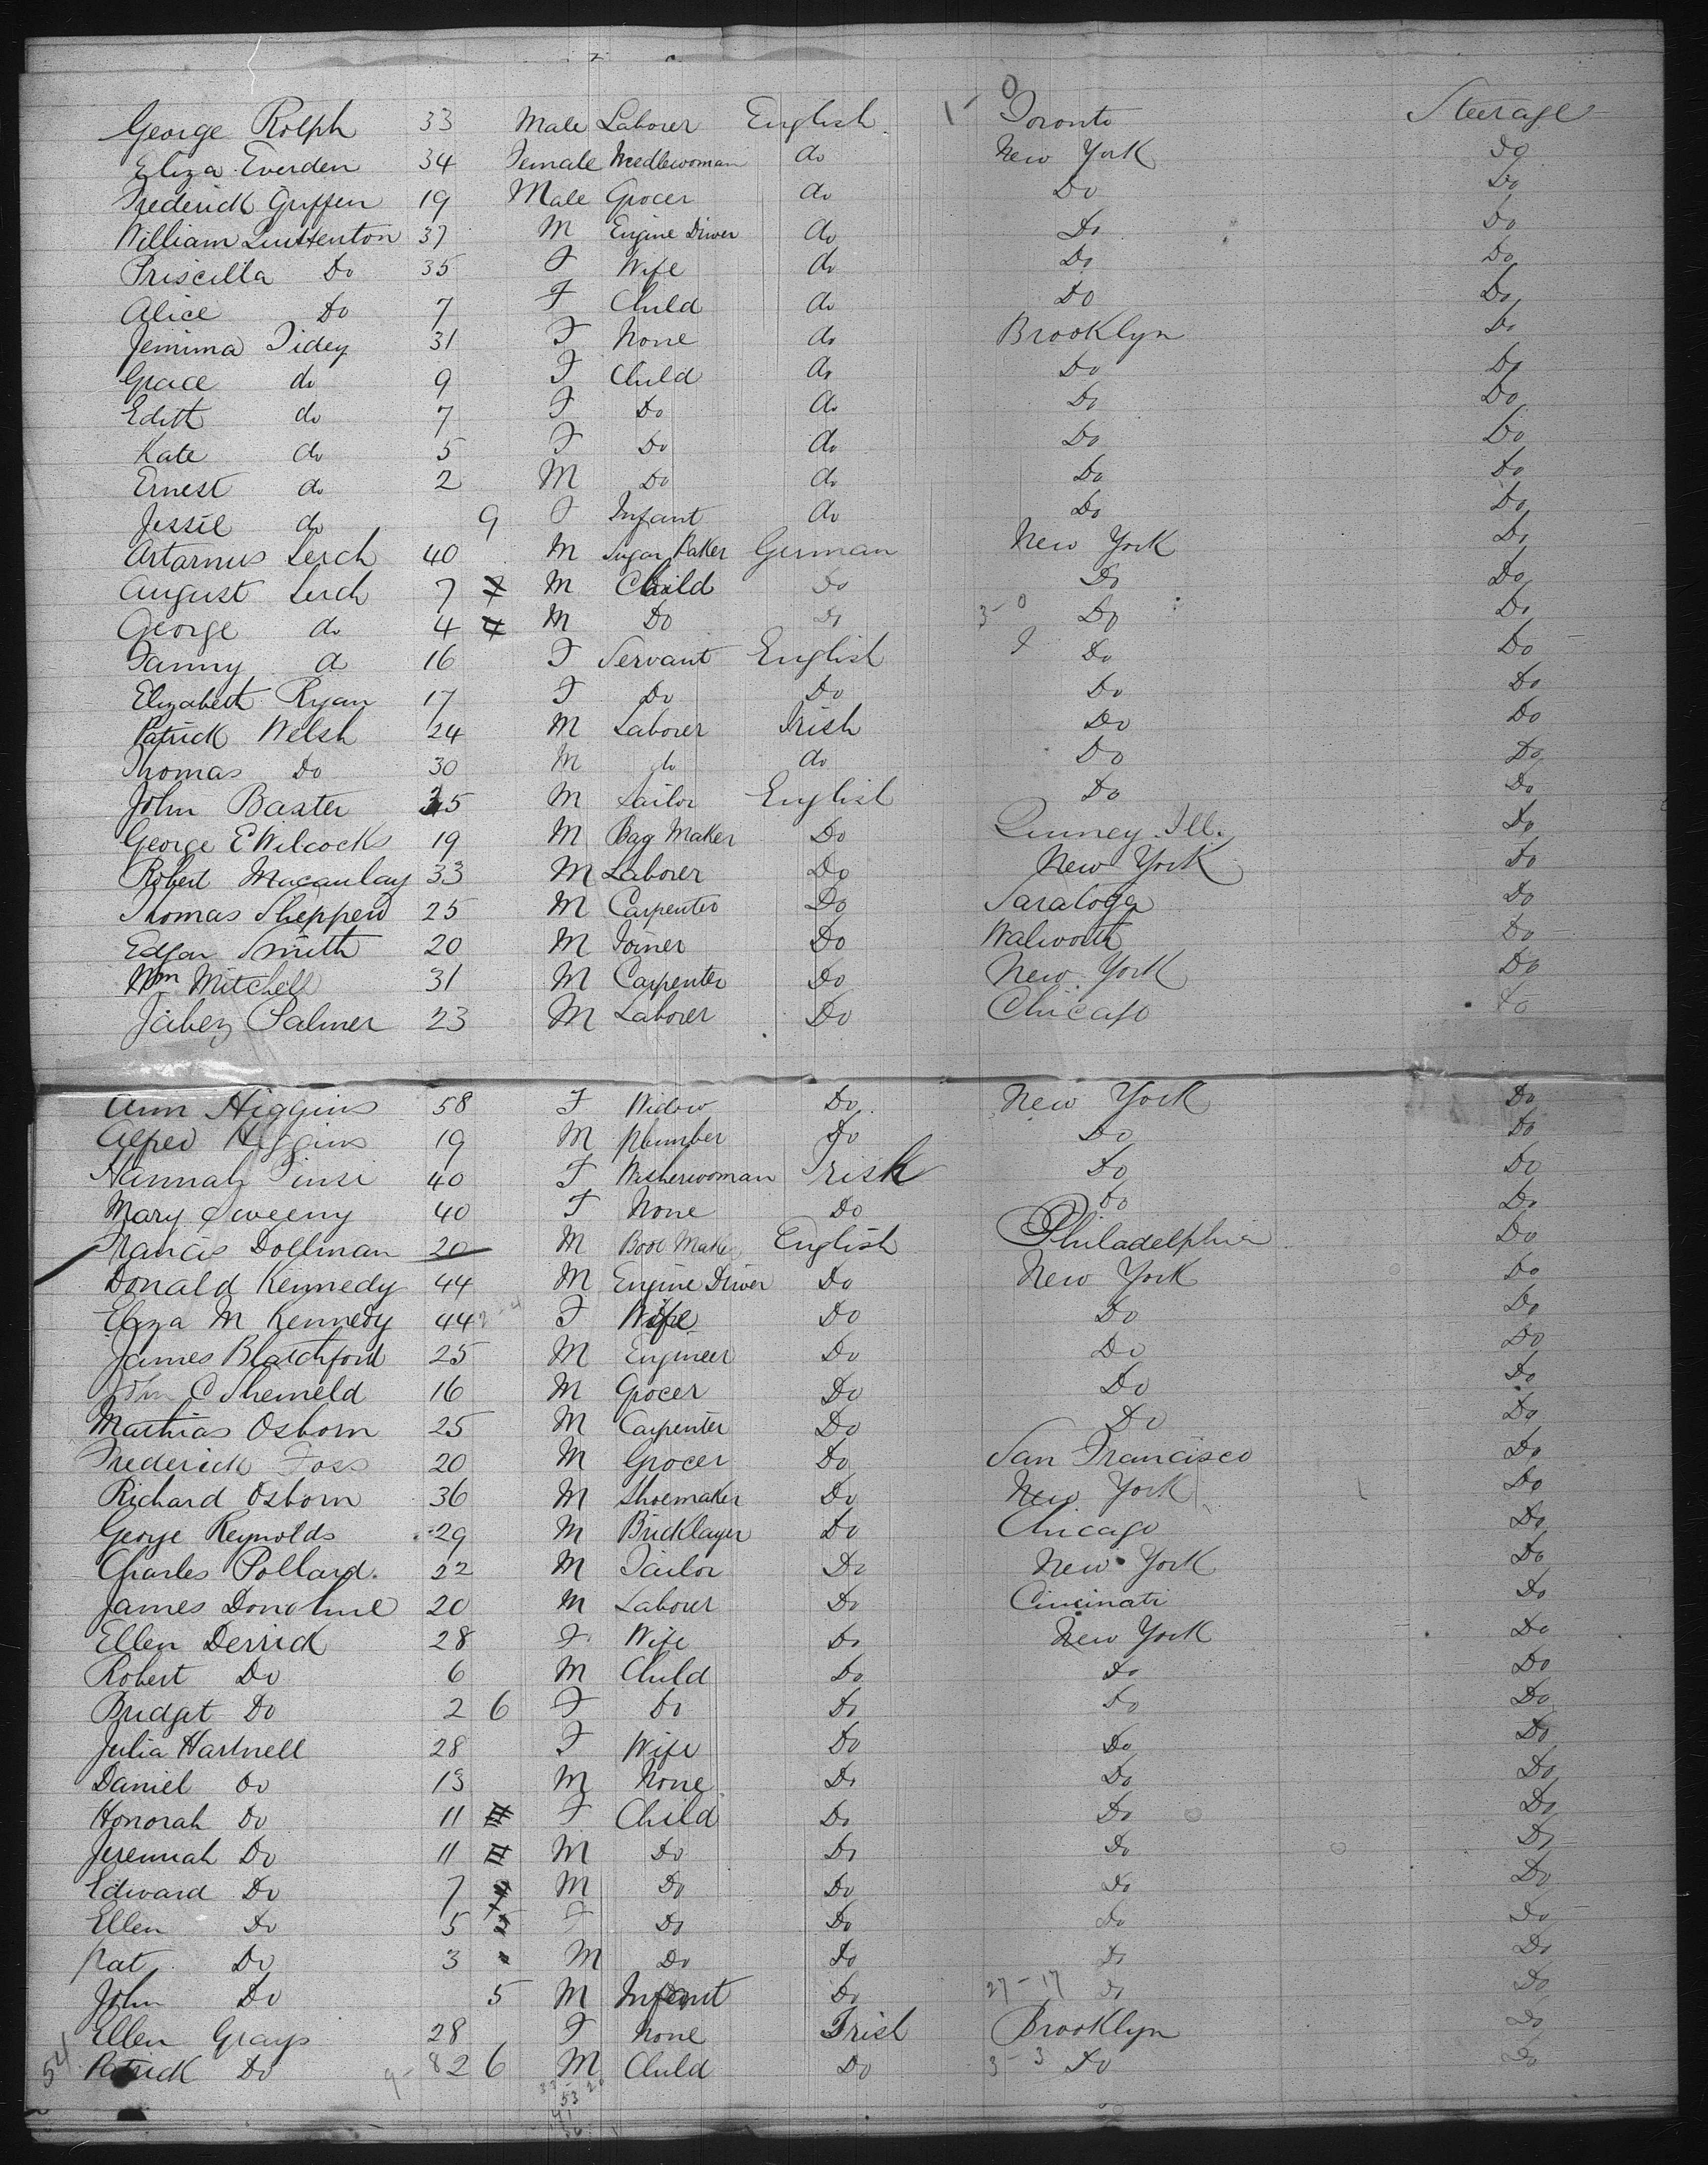 George Rolph 33 Male Laborer English 1- 0 Toronto Steerage
Eliza Everden 34 Female Needlewoman do New York Do
Frederick Griffen 19 Male Grocer do Do Do
William 37 M Engine Driver do Do Do
Priscilla Do 35 F Wife do Do Do
Alice Do 7 F Child do Do Do
Jemima Tidey 31 F None do Brooklyn Do
Grace do 9 F Child do Do Do
Edith do 7 F Do do Do Do
Kate do 5 F Do do Do Do
Ernest do 2 M Do do Do Do
Jessie do 9 F Infant do Do Do
Artarnus Lerch 40 M Sugar Baker German New York Do
August Lerch 7 M Child Do Do Do
George do 4 M Do Do 3-0 Do Do
Fanny 16 F Servant English Do Do
Elizabeth Ryan 17 F Do Do Do Do
Patrick Welsh 24 M Laborer Irish Do Do
Thomas Do 30 M do do Do Do
John Baxter 5 M Tailor English Do Do
George E Wilcocks 19 M Bag Maker Do Quiney Ill. Do
Robert Macaulay 33 M Laborer Do New York Do
Thomas Shepperd 25 M Carpenter Do Saratoga Do
Edgar Smith 20 M Joiner Do Walworth Do
Wm Mitchell 31 M Carpenter Do New York Do
Jabez Palmer 23 M Laborer Do Chicago Do
Ann Higgins 58 F Widow Do New York Do
Alfred Higgins 19 M plumber Do Do Do
Hannah 40 F Washerwoman Irish Do Do
Mary Sweeny 40 F None Do Do Do
Francis Dollman 20 M Boot Maker English Philadelphia Do
Donald Kennedy 44 M Engine Driver Do New York Do
Eliza M Kennedy 44 F Wife Do Do Do
James Blatchford 25 M Engineer Do Do Do
John C Shemeld 16 M Grocer Do Do Do
Mathias Osborn 25 M Carpenter Do Do Do
Frederick Foss 20 M Grocer Do San Francisco Do
Richard Osborn 36 M Shoemaker Do New York Do
George Reynolds 29 M Bricklayer Do Chicago Do
Charles Pollard. 22 M Tailor Do New York Do
James Donohue 20 M Laborer Do Cincinati Do
Ellen Derrick 28 F Wife Do New York Do
Robert Do 6 M Child Do Do Do
Bridget Do 2 6 F Do Do Do Do
Julia Hartnell 28 F Wife Do Do Do
Daniel Do 13 M None Do Do Do
Honorah Do 11 F Child Do Do Do
Jeremiah Do 11 M Do Do Do Do
Edward Do 7 M Do Do Do Do
Ellen Do 5 F Do Do Do Do
Pat Do 3 M Do Do Do Do
John Do 5 M Infant Do 27-17 Do Do
Ellen Grays 28 F None Irish Brooklyn Do
54 Patrick Do 9- 82 6 M Child Do 3-3 Do Do
53